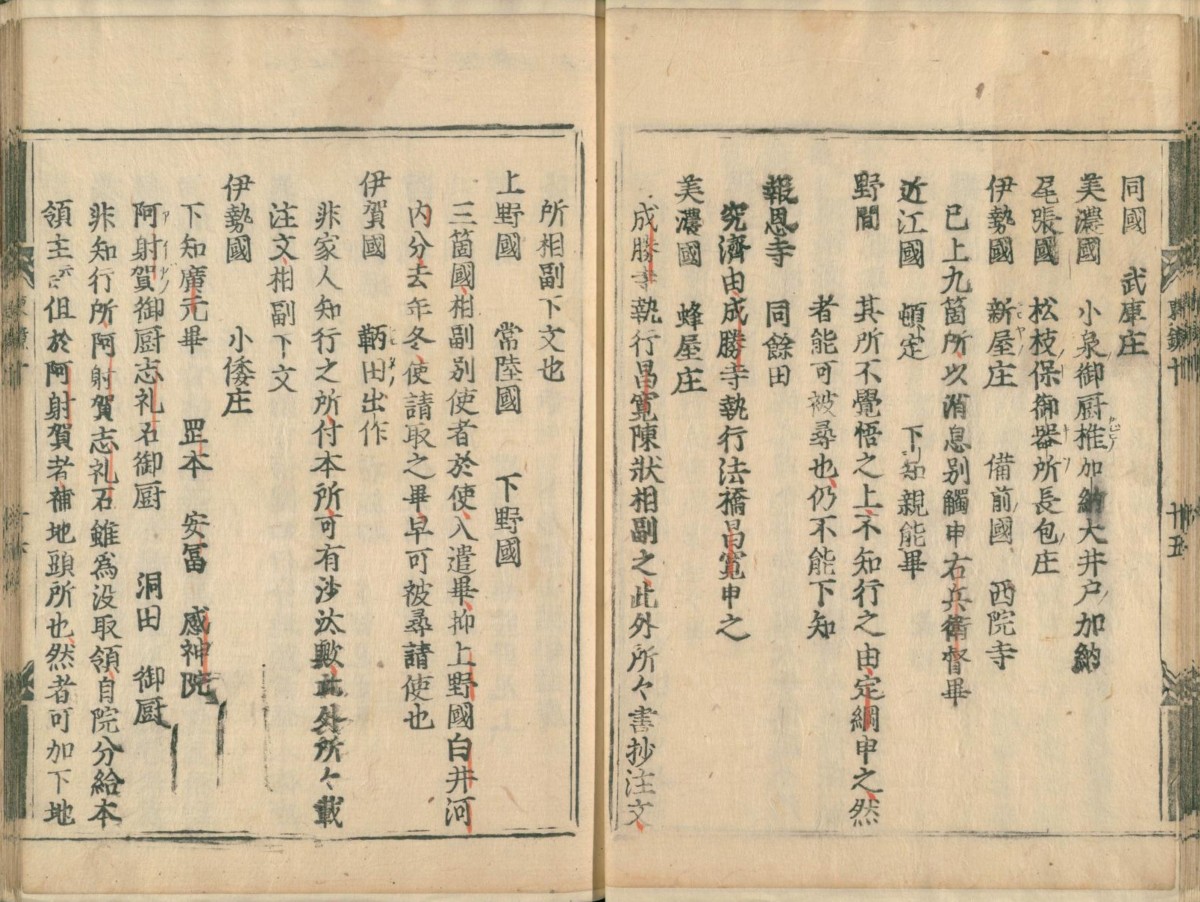 同國　武庫庄
美濃國　小泉御厨推加納大井戸加納
尾張國　松枝保御器所長包庄
伊勢國　新屋庄　備前國　西院寺
已上九箇所以消息別觸申右兵衛督畢
近江國　頓定　下知親能畢
野間　其所不覺悟之上不知行之由定綱申之然
者能可被尋也仍不能下知
報恩寺　同餘田
究濟由成勝寺執行法橋昌寛申之
美濃國　蜂屋庄
成勝寺執行昌寛陳状相副之此外所々書抄注文
東鑑十　十五
所相副下文也
上野國　常陸國　下野國
三箇國相副別使者於使入遣畢抑上野國白井河
内分去年冬使請取之畢早可被尋請使也
伊賀國　鞆田出作
非家人知行之所付本所可有沙汰歟此外所々載
注文相副下文
伊勢國　小倭庄
下知廣元畢　罡本　安冨　感神院
阿射賀御厨志礼石御厨　洞田　御厨
非知行所阿射賀志礼石雖為没取領自院分給本
領主云云但於阿射賀者補地頭所也然者可加下地